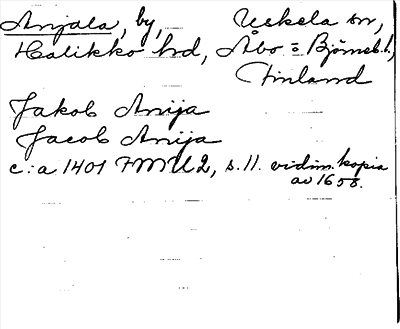 Anjala, by, Uskela sn,
Halikko hd, Åbo = Björneb. l,
Finland
Jakob Anija
Jacob Anija
c:a 1401 FMU 2, s. 11. vidim. kopia
av 1658.